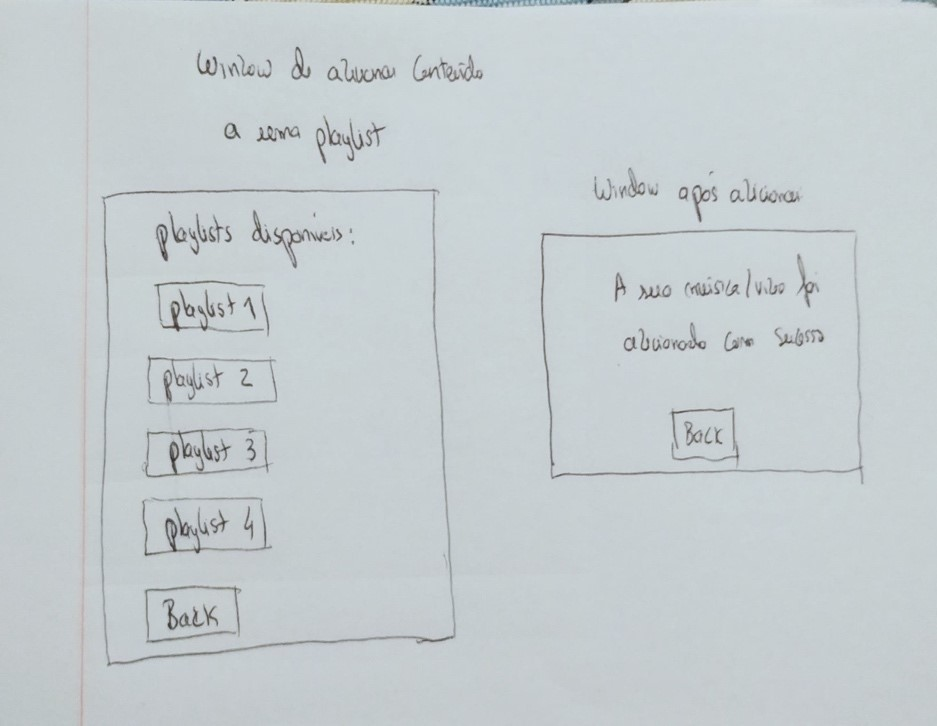 Window de adicionar Conteúdo
a uma playlist
playlists disponíveis:
playlist 1
playlist 2
playlist 3
playlist 4
Back
Window após adicionar
A sua música/video foi
adicionado com sucesso
Back